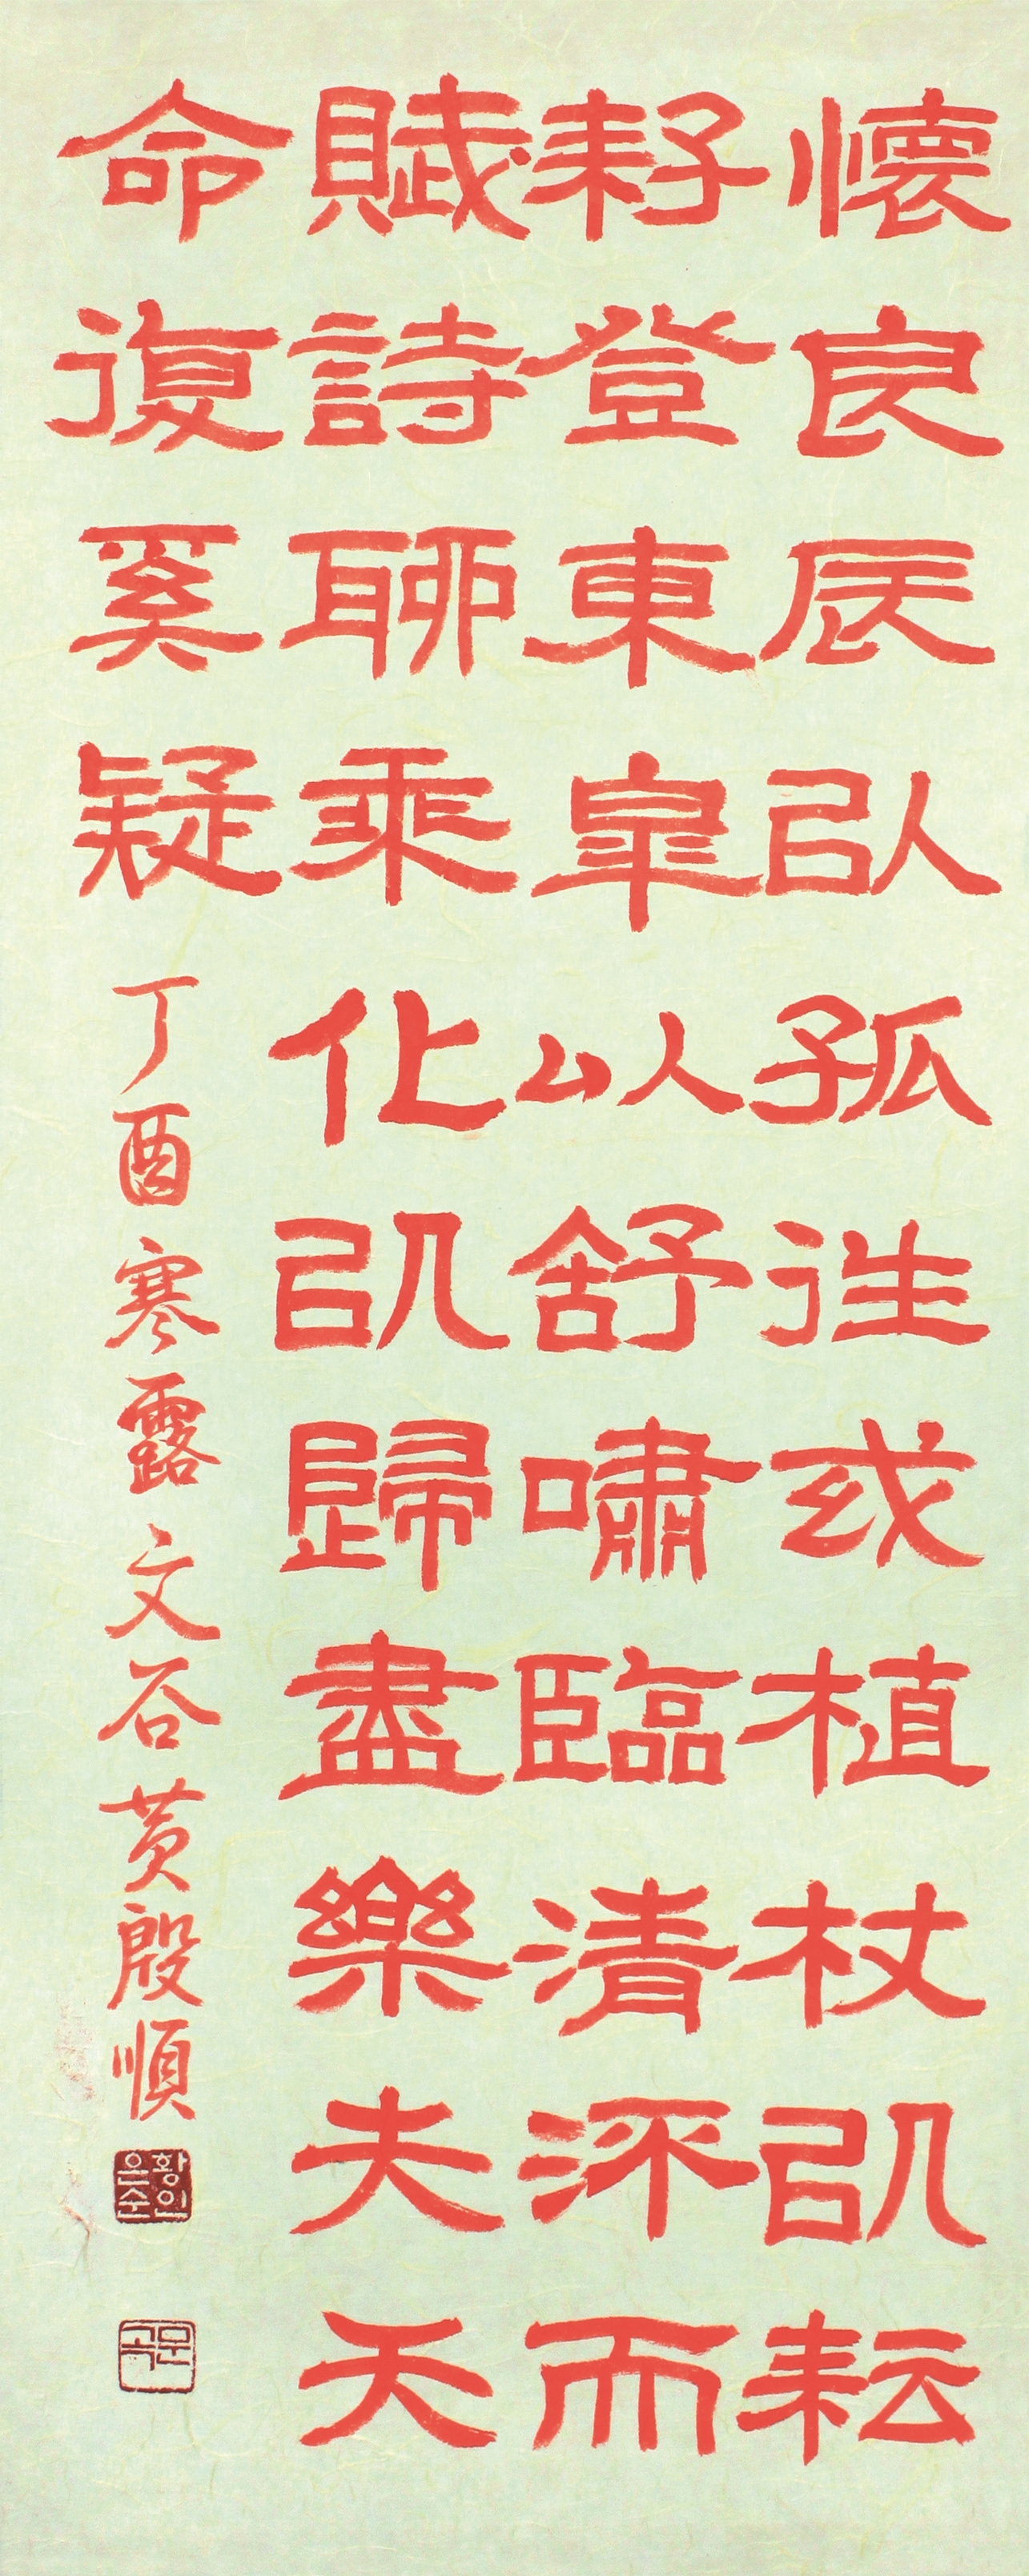 懷良辰以孤往或植杖以耘
耔登東皐以舒嘯臨清流而
賦詩聊乘化以歸盡樂夫天
命復奚疑 丁酉寒露文谷黃殷順
황은순인
문곡